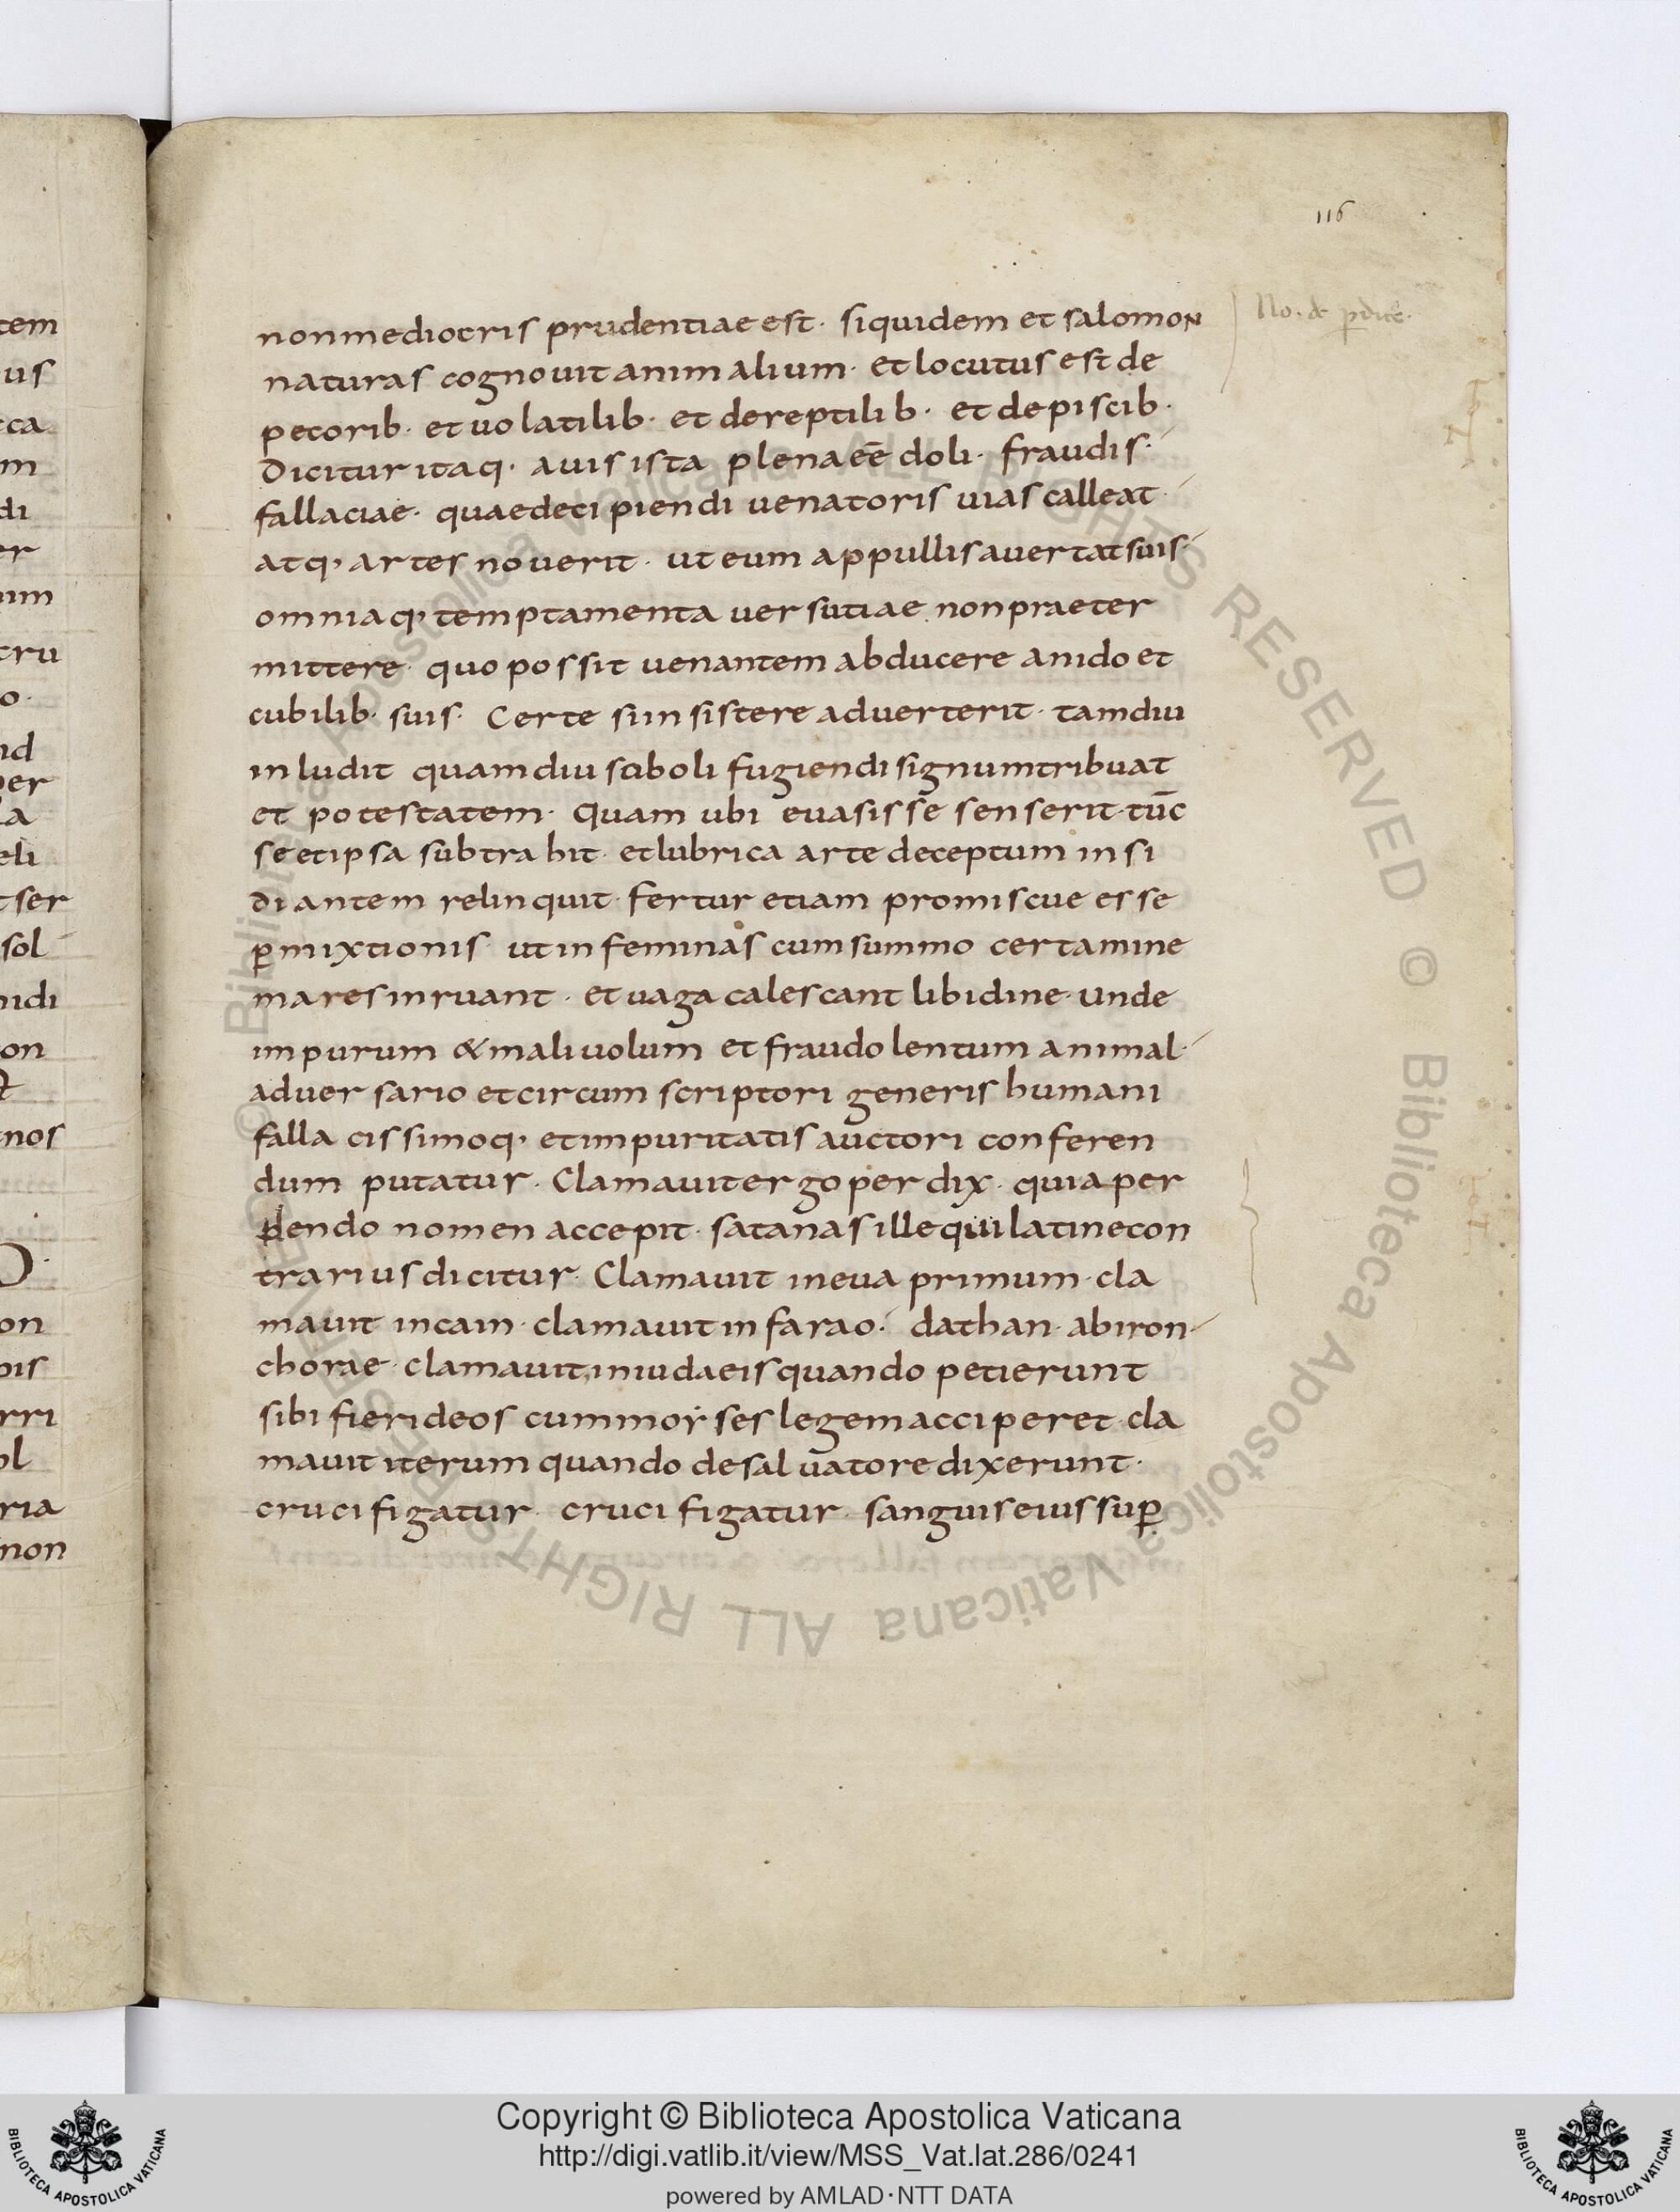 116
No. de pdice.
non mediocris prudentiae est · siquidem et salomon
naturas cognouit animalium · et locutus est de
pecorib · et uolatilib · et de reptilib · et de piscib ·
Dicitur itaq · auis ista plena eē doli · fraudis ·
fallaciae · quae decipiendi uenatoris uias calleat ·
atq, artes nouerit · ut eum appullis auertat suis ·
omniaq, temptamenta uersutiae non praeter
mittere · quo possit uenantem abducere a nido et
cubilib · suis · Certe si insistere aduerterit · tamdiu
inludit quamdiu suboli fugiendi signum tribuat
et potestatem · Quam ubi euasisse senserit · tūc
se et ipsa subtrahit · et lubrica arte deceptum insi
diantem relinquit · fertur etiam promiscue esse
ꝑmixtionis · ut in feminas cum summo certamine
mares inruant · et uaga calescant libidine · Unde
impurum & maliuolum et fraudolentum animal ·
aduersario et circumscriptori generis humani
fallacissimoq, et impuritatis auctori conferen
dum putatur · Clamauit ergo perdix · quia per
dendo nomen accepit · satanas ille qui latine con
trarius dicitur · Clamauit in eua primum · cla
mauit in cain · clamauit in farao · dathan · abiron ·
chorae · clamauit in iudaeis quando petierunt
sibi fieri deos cum moẏses legem acciperet · cla
mauit iterum quando de saluatore dixerunt ·
crucifigatur · crucifigatur · sanguis eius suꝑ
tem
us
cca
m
di
er
um
tru
o ·
id
per
la
eli
t ser
sol
nidi
on
nos
on
bis
rri
ol
ria
non
© Biblioteca Apostolica Vaticana ALL RIGHTS RESERVED
© Biblioteca Apostolica Vaticana ALL RIGHTS RESERVED
Copyright © Biblioteca Apostolica Vaticana
http://digi.vatlib.it/view/MSS_Vat.lat.286/0241
powered by AMLAD·NTT DATA
BIBLIOTECA APOSTOLICA VATICANA
BIBLIOTECA APOSTOLICA VATICANA